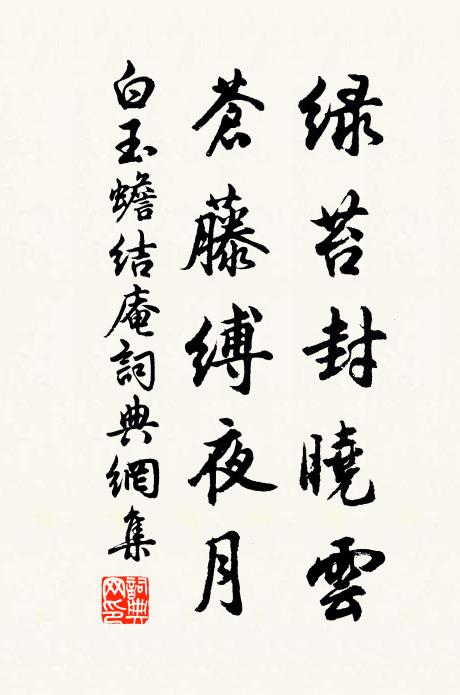 绿苔封曉雲
蒼藤縛夜月
白玉蟾結庵詞典網集
詞典网印